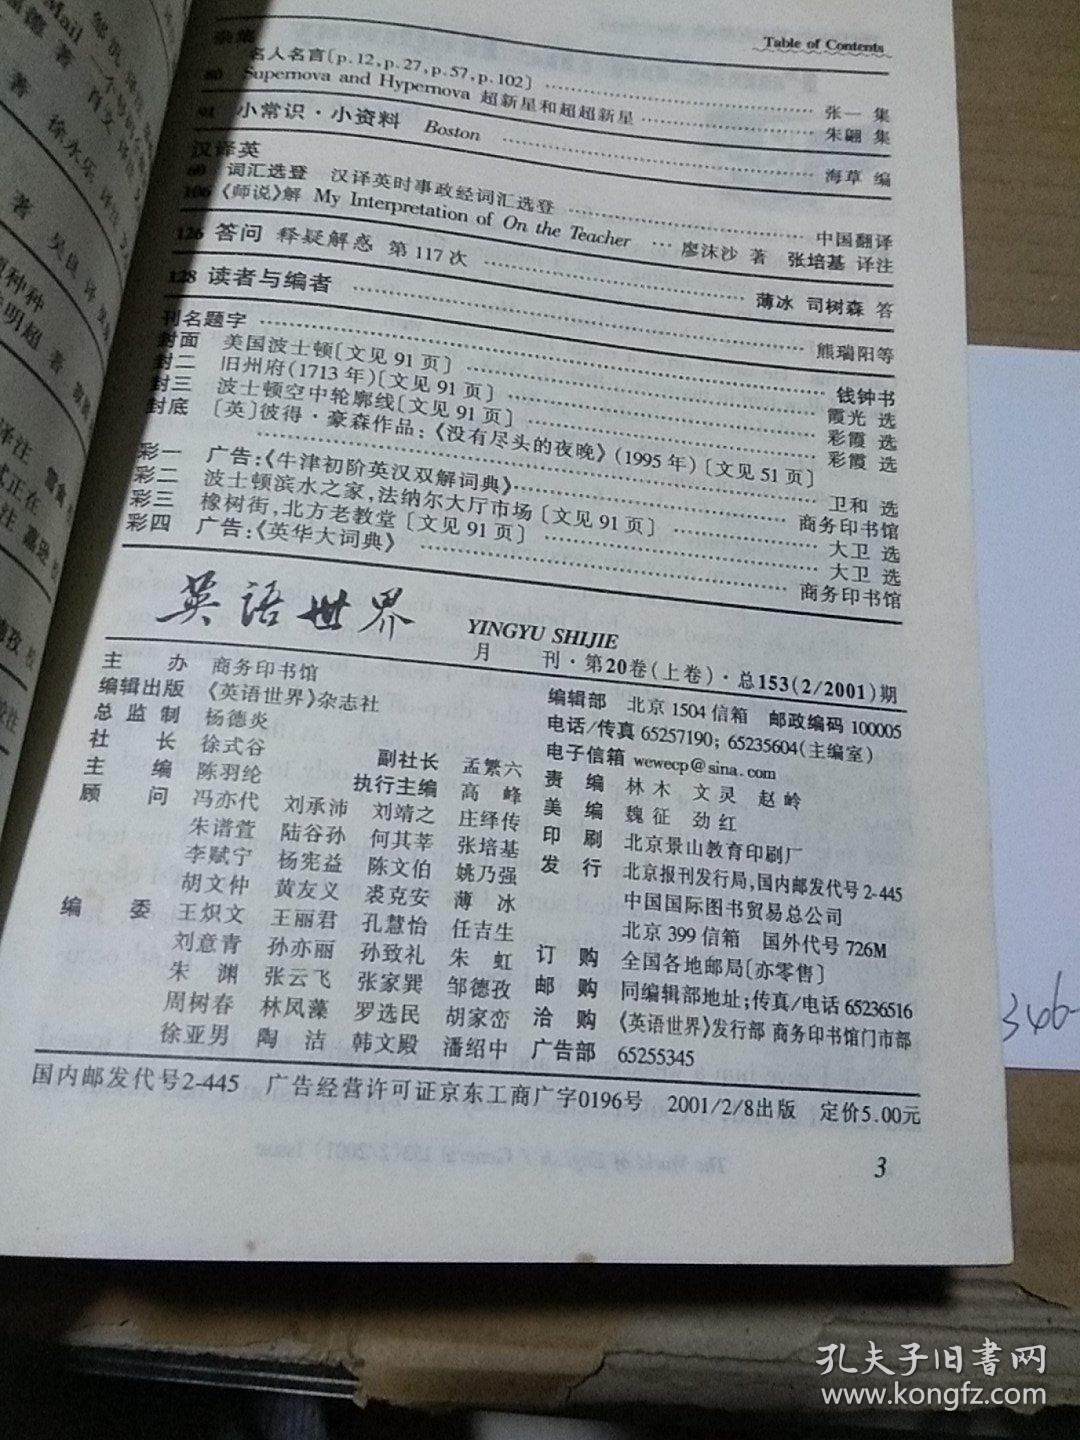 Table of Contents
杂集
名人名言〔p.12,p.27,p.57,p.102〕 张一 集
80 Supernova and Hypernova 超新星和超超新星 朱翩 集
91 小常识·小资料 Boston 海草 编
汉译英
60 词汇选登 汉译英时事政经词汇选登 中国翻译
106 《师说》解 My Interpretation of On the Teacher … 廖沫沙 著 张培基 译注
126 答问 释疑解惑 第117次 薄冰 司树森 答
128 读者与编者 熊瑞阳等
刊名题字 钱钟书
封面 美国波士顿〔文见91页〕 霞光 选
封二 旧州府(1713年)〔文见91页〕 彩霞 选
封三 波士顿空中轮廓线〔文见91页〕 彩霞 选
封底 〔英〕彼得·豪森作品:《没有尽头的夜晚》(1995年)〔文见51页〕
卫和 选
彩一 广告:《牛津初阶英汉双解词典》 商务印书馆
彩二 波士顿滨水之家,法纳尔大厅市场〔文见91页〕 大卫 选
彩三 橡树街,北方老教堂〔文见91页〕 大卫 选
彩四 广告:《英华大词典》 商务印书馆
英語世界 YINGYU SHIJIE
月 刊·第20卷(上卷)·总153(2/2001)期
主 办 商务印书馆
编辑出版 《英语世界》杂志社
总监制 杨德炎
社 长 徐式谷 副社长 孟繁六
主 编 陈羽纶 执行主编 高 峰
顾 问 冯亦代 刘承沛 刘靖之 庄绎传
朱谱萱 陆谷孙 何其莘 张培基
李赋宁 杨宪益 陈文伯 姚乃强
胡文仲 黄友义 裘克安 薄 冰
编 委 王炽文 王丽君 孔慧怡 任吉生
刘意青 孙亦丽 孙致礼 朱 虹
朱 渊 张云飞 张家巽 邹德孜
周树春 林凤藻 罗选民 胡家峦
徐亚男 陶 洁 韩文殿 潘绍中
编辑部 北京1504信箱 邮政编码 100005
电话/传真 65257190; 65235604(主编室)
电子信箱 wewecp@sina.com
责 编 林 木 文 灵 赵 岭
美 编 魏 征 劲 红
印 刷 北京景山教育印刷厂
发 行 北京报刊发行局,国内邮发代号2-445
中国国际图书贸易总公司
北京399信箱 国外代号726M
订 购 全国各地邮局〔亦零售〕
邮 购 同编辑部地址;传真/电话 65236516
洽 购 《英语世界》发行部 商务印书馆门市部
广告部 65255345
国内邮发代号2-445 广告经营许可证京东工商广字0196号 2001/2/8出版 定价5.00元
3
346
孔夫子旧书网
www.kongfz.com